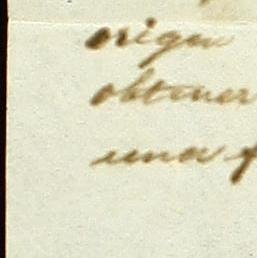 origen
obtener
una